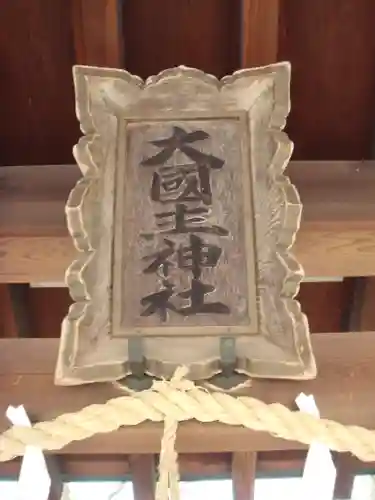 大國主神社